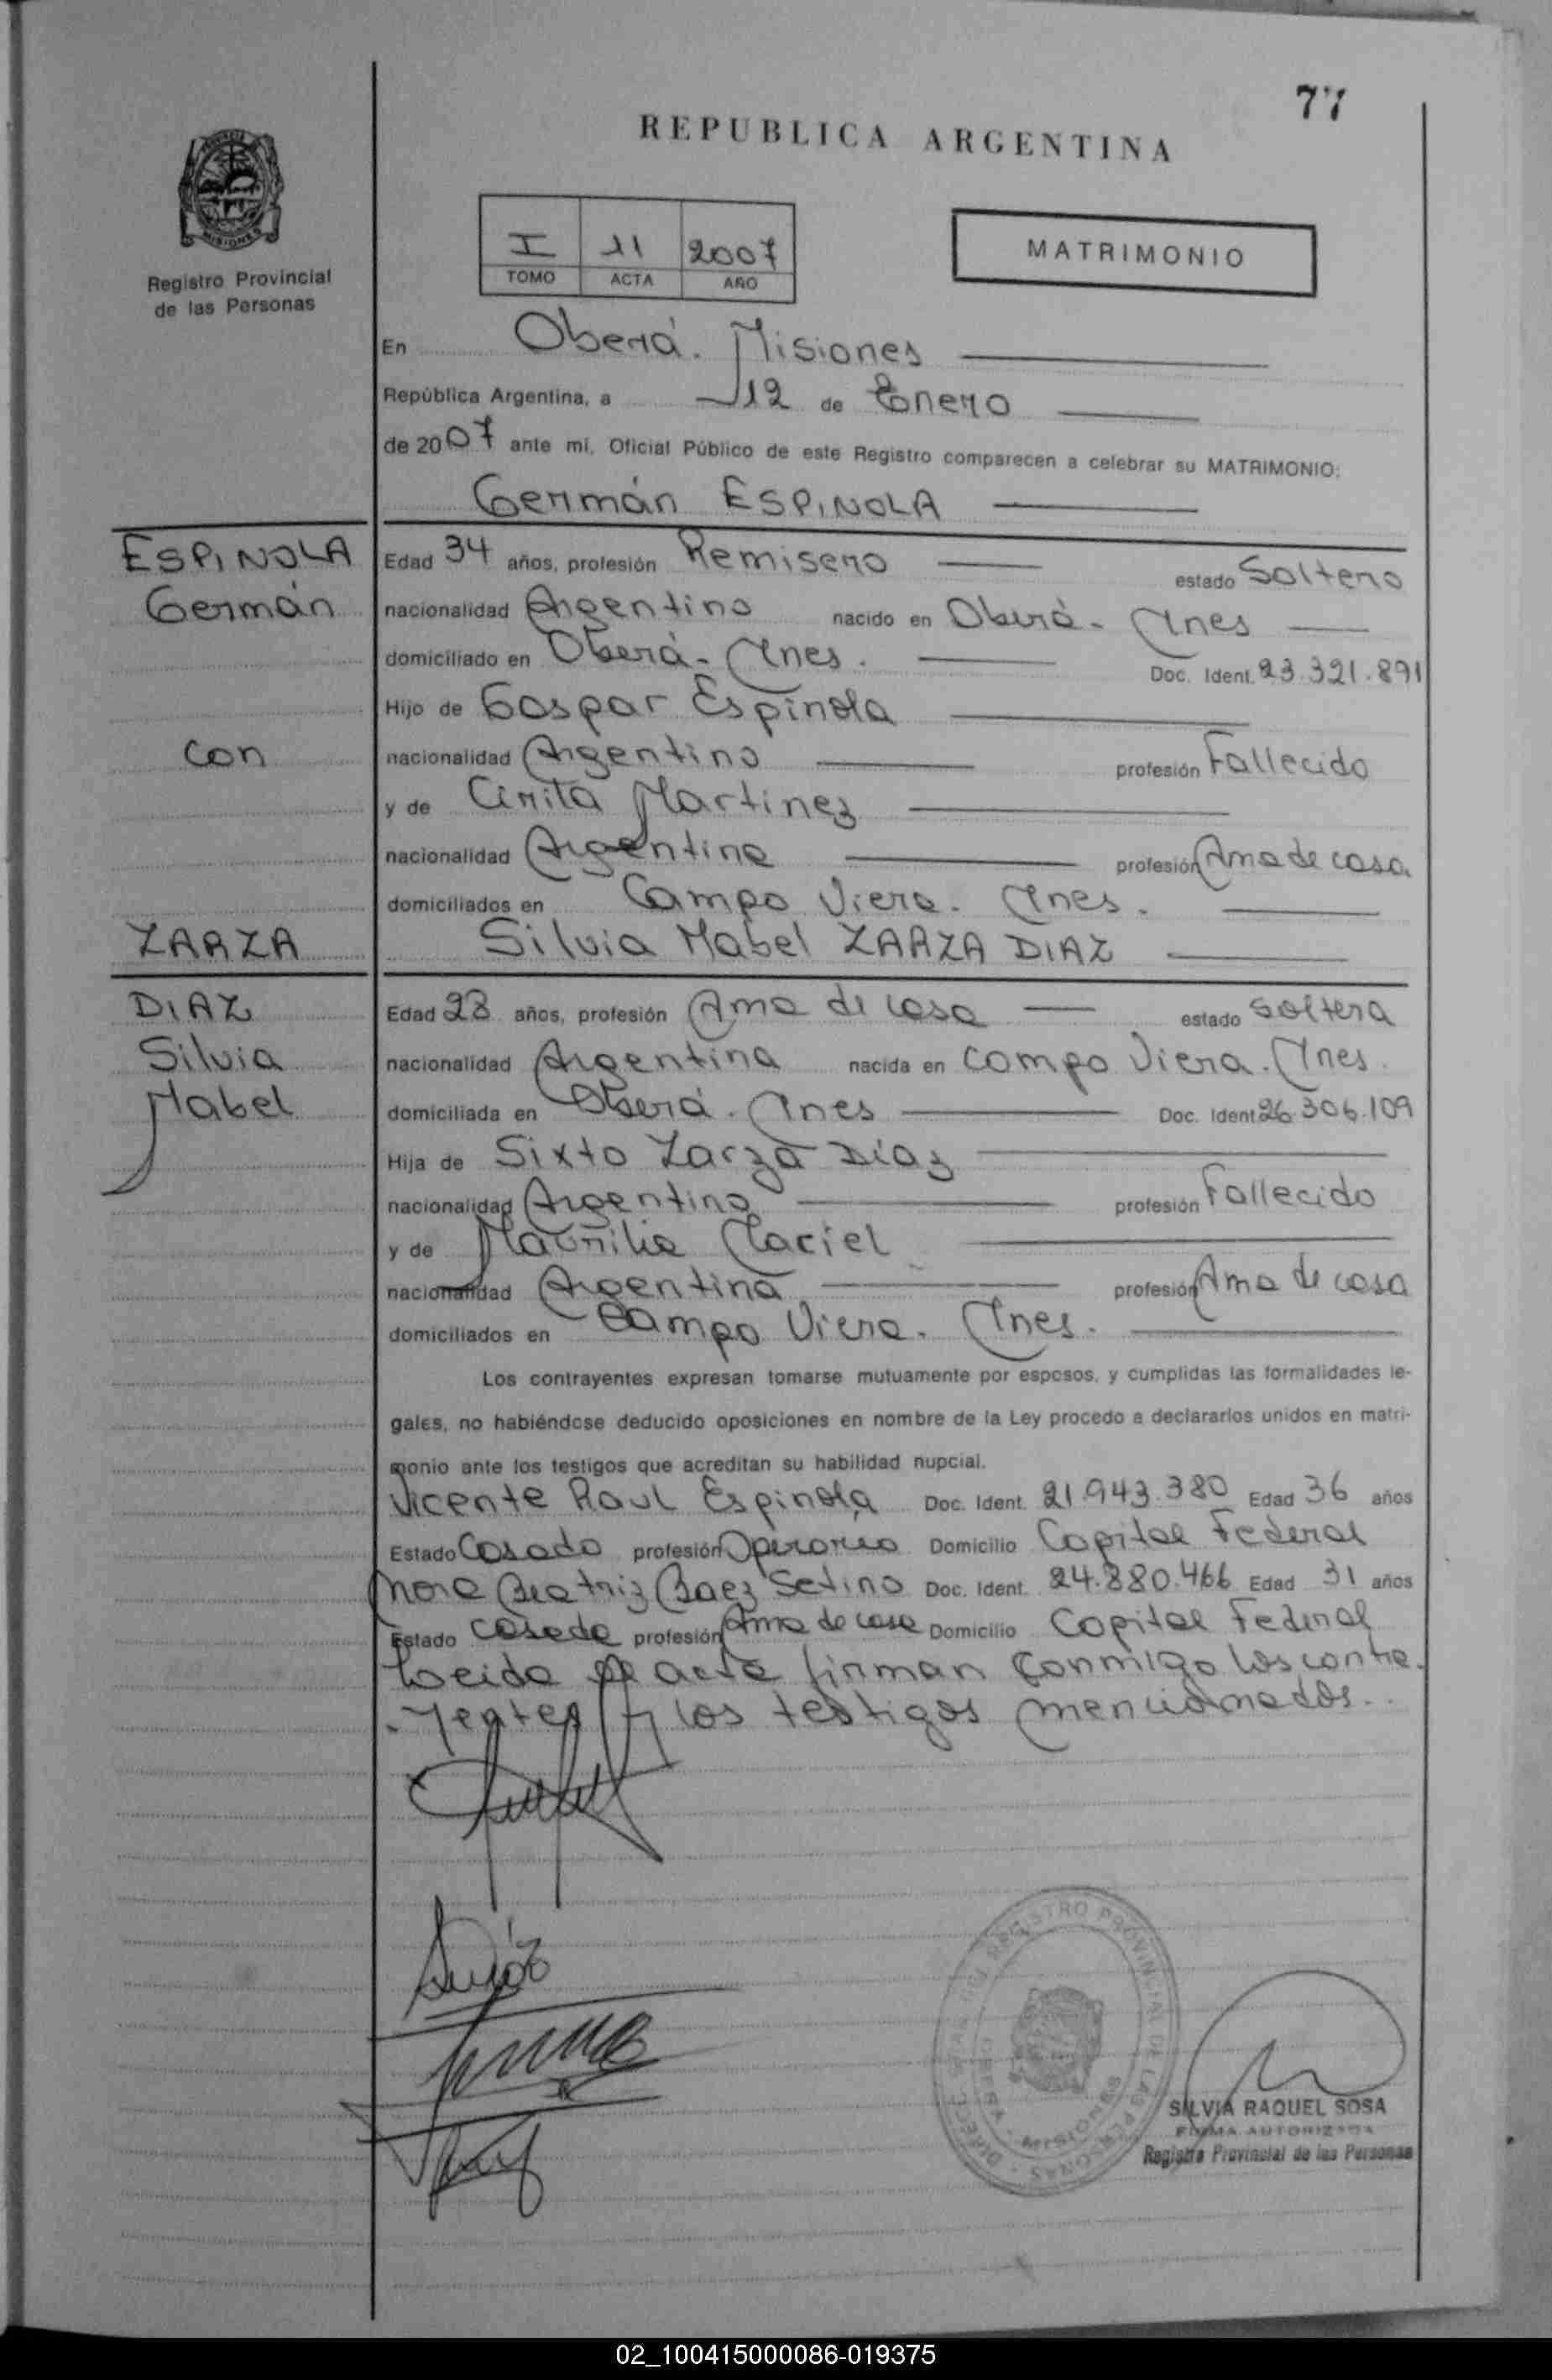 77
REPUBLICA ARGENTINA
MISIONES
Registro Provincial
de las Personas
I 11 2007
TOMO ACTA AÑO
MATRIMONIO
En Oberá. Misiones
República Argentina, a 12 de Enero
de 2007 ante mi, Oficial Público de este Registro comparecen a celebrar su MATRIMONIO:
Germán ESPINOLA
ESPINOLA
Germán
con
ZARZA
DIAZ
Silvia
Mabel
Edad 34 años, profesión Remisero estado Soltero
nacionalidad Argentino nacido en Oberá - Mnes
domiciliado en Oberá - Mnes. Doc. Ident. 23.321.891
Hijo de Gaspar Espinola
nacionalidad Argentino profesión Fallecido
y de Cirita Martinez
nacionalidad Argentina profesión Ama de casa
domiciliados en Campo Viera. Mnes.
Silvia Mabel ZARZA DIAZ
Edad 28 años, profesión Ama de casa estado soltera
nacionalidad Argentina nacida en Campo Viera. Mnes.
domiciliada en Oberá. Mnes Doc. Ident. 26.306.109
Hija de Sixto Zarza Diaz
nacionalidad Argentino profesión Fallecido
y de Maciel
nacionalidad Argentina profesión Ama de casa
domiciliados en Campo Viera. Mnes.
Los contrayentes expresan tomarse mutuamente por esposos, y cumplidas las formalidades le-
gales, no habiéndose deducido oposiciones en nombre de la Ley procedo a declararlos unidos en matri-
monio ante los testigos que acreditan su habilidad nupcial.
Vicente Raul Espinola Doc. Ident. 21.943.380 Edad 36 años
Estado Casado profesión Operario Domicilio Capital Federal
Nora Beatriz Baez Setino Doc. Ident. 24.880.466 Edad 31 años
Estado casada profesión Ama de casa Domicilio Capital Federal
Leida el acta firman conmigo los contra-
-yentes y los testigos mencionados.
REGISTRO PROVINCIAL DE LAS PERSONAS
MISIONES
SILVIA RAQUEL SOSA
FIRMA AUTORIZADA
Registro Provincial de las Personas
02_100415000086-019375